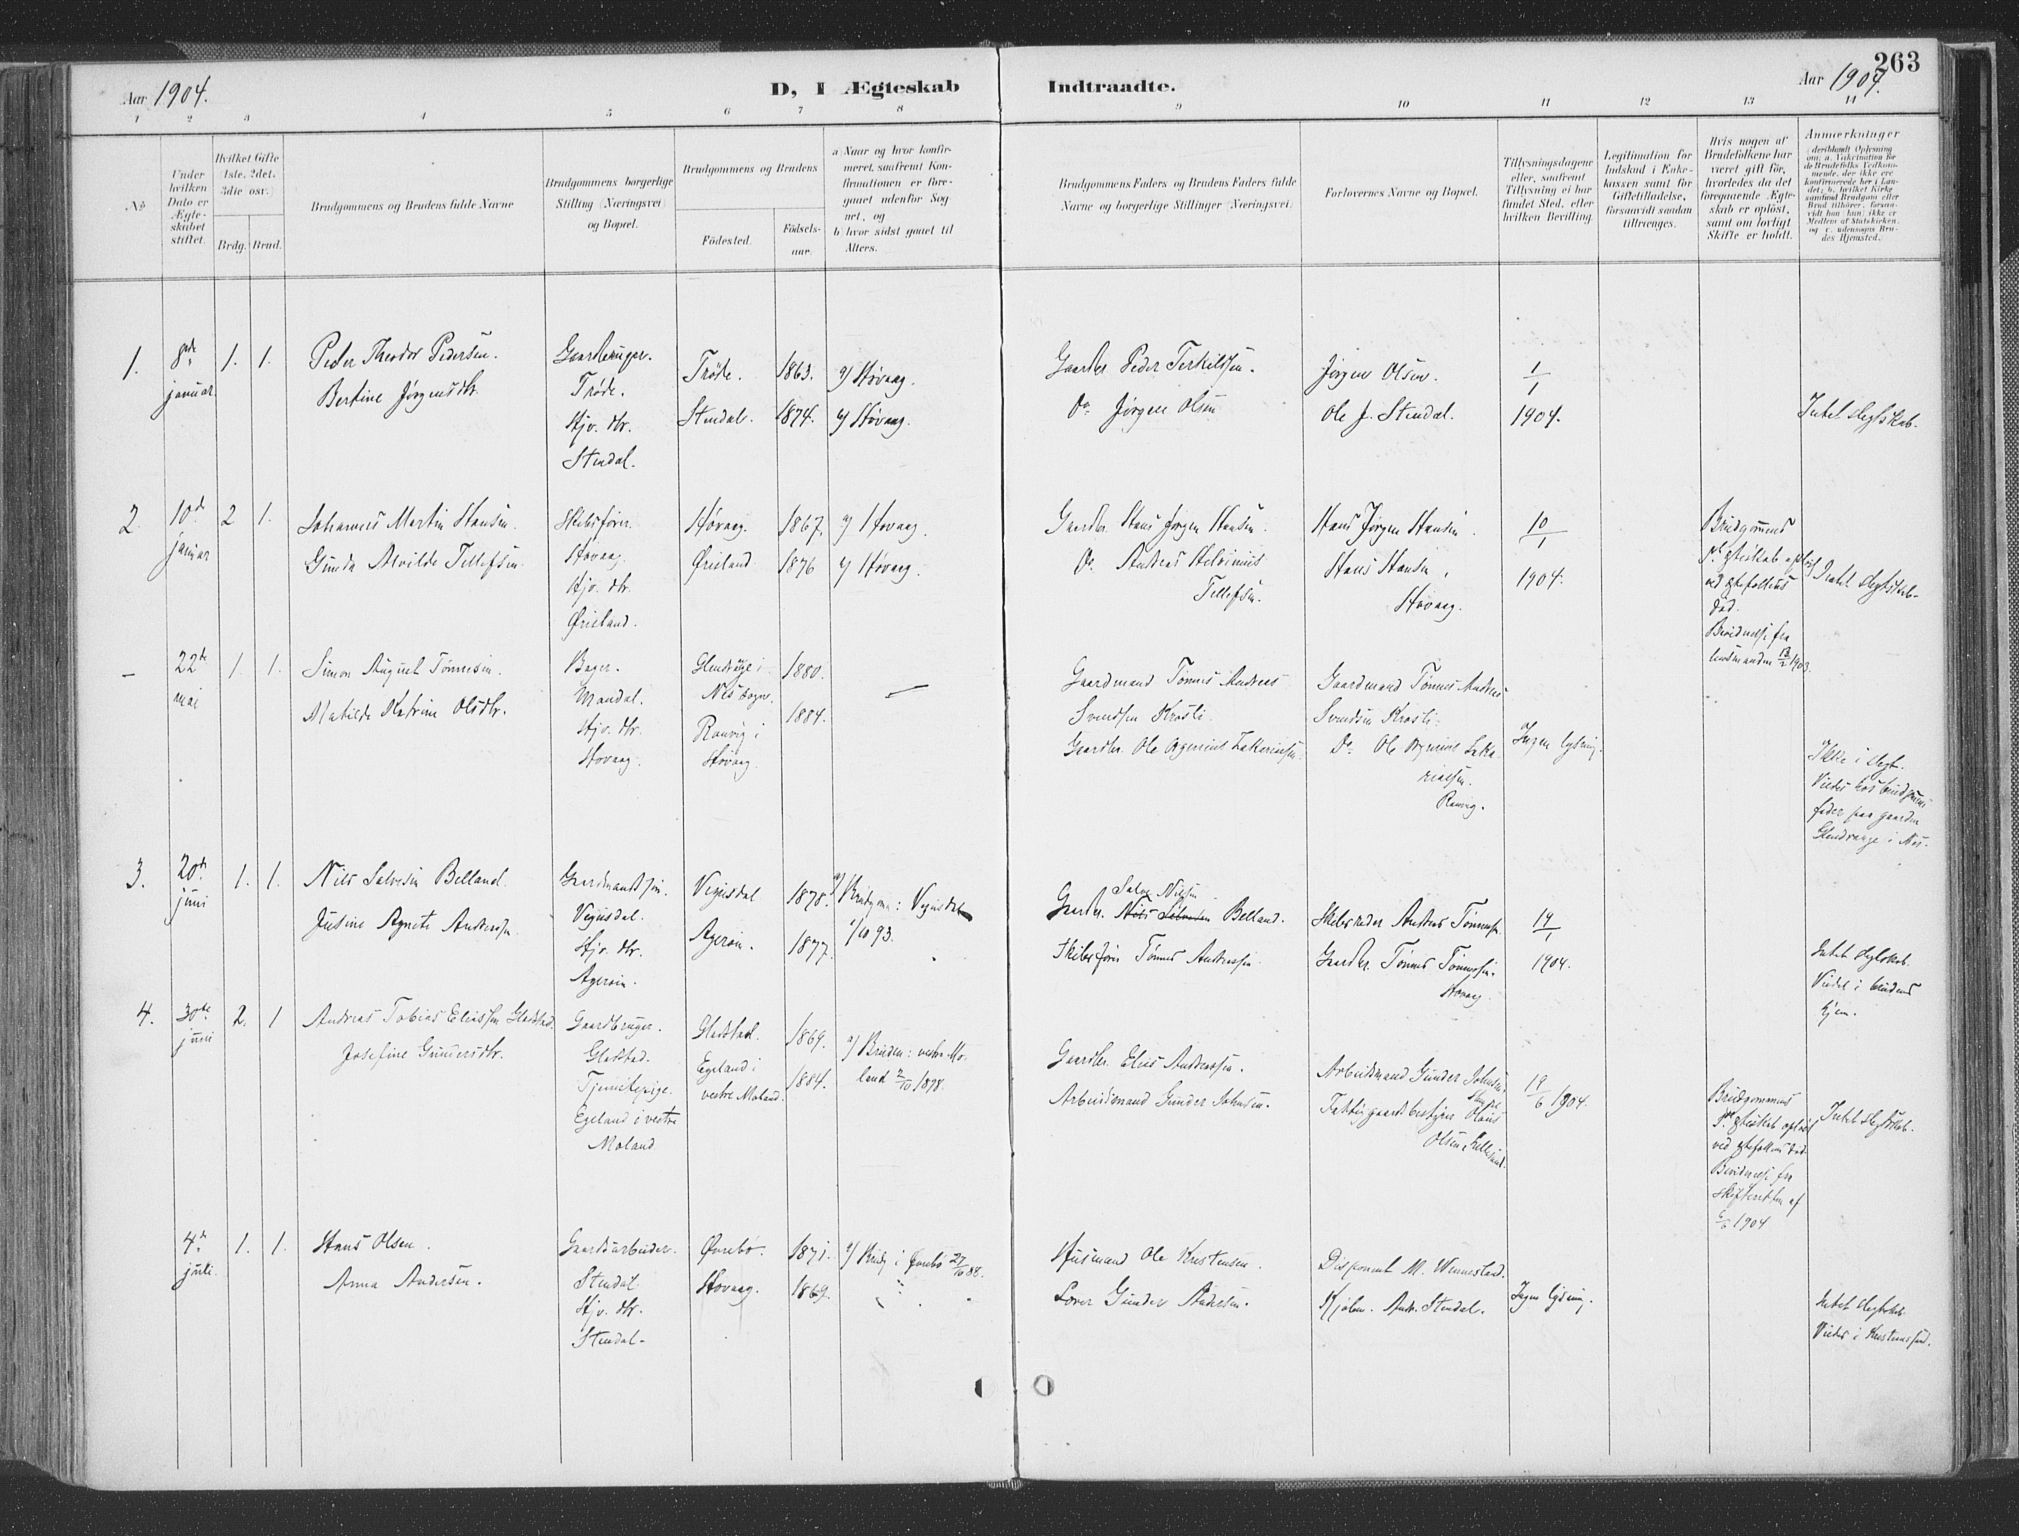 263
Aar 1904.
D, I Ægteskab Indtraadte.
Aar 1904.
1 2 3 4 5 6 7 8 9 10 11 12 13 14
No
Under hvilken Dato er Ægteskabet stiftet.
Hvilket Gifte (1ste, 2det, 3die osv.)
Brdg. Brud.
Brudgommens og Brudens fulde Navne
Brudgommens borgerlige Stilling (Næringsvei) og Bopæl.
Brudgommens og Brudens
Födested.
Födselsaar.
a) Naar og hvor konfirmeret, saafremt Konfirmationen er foregaaet udenfor Sognet, og
b) hvor sidst gaaet til Alters.
Brudgommens Faders og Brudens Faders fulde Navne og borgerlige Stillinger (Næringsvei).
Forlovernes Navne og Bopæl.
Tillysningsdagene eller, saafremt Tillysning ei har fundet Sted, efter hvilken Bevilling.
Legitimation for Indskud i Enkekassen samt for Giftetilladelse, forsaavidt saadan tiltrænges.
Hvis nogen af Brudefolkene har været gift før, hvorledes da det foregaaende Ægteskab er opløst, samt om lovligt Skifte er holdt.
Anmerkninger
(deriblandt Oplysning om: a. Vakcination for de Brudefolks Vedkommende, der ikke ere konfirmerede her i Landet; b. hvilket Kirkesamfund Brudgom eller Brud tilhører, forsaavidt han (hun) ikke er Medlem af Statskirken, og c. udensogns Brudes Hjemsted.)
1. 8de januar 1. 1.
Peder Theodor Pedersen.
Bertine Jørgensdtr.
Gaardbruger.
Trøde.
Hjv. dtr.
Stendal.
Trøde. 1863. a) Høvaag.
Stendal. 1874. b) Høvaag.
Gaardbr. Peder Terkildsen.
Do. Jørgen Olsen
Jørgen Olsen.
Ole J. Stendal.
1/1 1904.
Intet slegtskab.
2 10d januar 2 1.
Johannes Martin Hansen.
Gunda Alvilde Tellefsen
Skibsfører.
Høvaag.
Hjv. dtr.
Ørieland.
Høvaag. 1867. a) Høvaag.
Ørieland 1876 b) Høvaag.
Gaardbr. Hans Jørgen Hansen.
Do. Andreas
Tellefsen.
Hans Jørgen Hansen.
Hans Hansen,
Høvaag.
10/1 1904.
Brudgommens
ægteskab opløst
ved ægtefellens
död.
Bevidnelse fra
lensmanden 13/2 1903
Intet slegtskab.
— 22de mai 1. 1.
Simon August Tønnesen.
Matilde Katrine Olsdtr.
Bager.
Mandal.
Hjv. dtr.
Høvaag.
Glendrage i
Nes sogn. 1880.
Ranvig i
Høvaag. 1884.
—
Gaardmand Tønnes Andreas
Svendsen Krosli.
Gaardbr. Ole Agerius Zakariassen.
Gaardmand Tønnes Andreas
Svendsen Krosli.
Do. Ole Agerius Zaka-
riassen.
Ranvig.
Ingen lysning.
Ikke i slegt.
Viedes hos brudgommens
fader paa gaarden
Glendrange i Nes.
3. 20de juni 1. 1.
Nils Salvesen Belland.
Justine Agnete Andersen
Gaardmandssøn.
Vegusdal.
Hjv. dtr.
Agerøen.
Vegusdal 1878.
Agerøen. 1877.
a) Brudgom: Vegusdal
1/10 93.
Salve Nilsen
Gaardbr. Nils Salvesen Belland.
Skibsfører Tønnes Andreassen.
Skibsreder Andreas Tønnesen.
Gaardbr. Tønnes Tønnesen.
Høvaag.
1904.
Intet slegtskab.
Viedet i brudens
hjem.
4. 30te juni 2. 1
Andreas Tobias Eliassen Gladstad.
Josefine Gundersdtr.
Gaardbruger.
Gladstad.
Tjenestepige.
Egeland i vestre
Moland.
Gladstad. 1869.
Egeland i
vestre Moland. 1884.
a) Bruden: vestre Mo-
land 2/10 1898.
Gaardbr. Elias Andreassen.
Arbeidsmand Gunder Johnsen.
Arbeidsmand Gunder Johnsen.
Olaus
Olsen,
19/6 1904.
Brudgommens
ægteskab opløst
ved ægtefellens död.
Bevidnelse fra
skifteretten af
6/6 1904
Intet slegtskab.
4de juli. 1. 1.
Hans Olsen.
Anna Andersen.
Gaardsarbeider.
Stendal
Hjv. dtr.
Stendal.
Øvrebø. 1871.
Høvaag. 1869.
a) Brdg i Øvrebø 27/10 88.
Husmand Ole Kristensen.
Gunder Andersen.
Disponent M. Wennesland.
Kjøbm. Andr. Stendal.
Ingen lysning.
Intet slegtskab.
Viedes i Kristianssand.